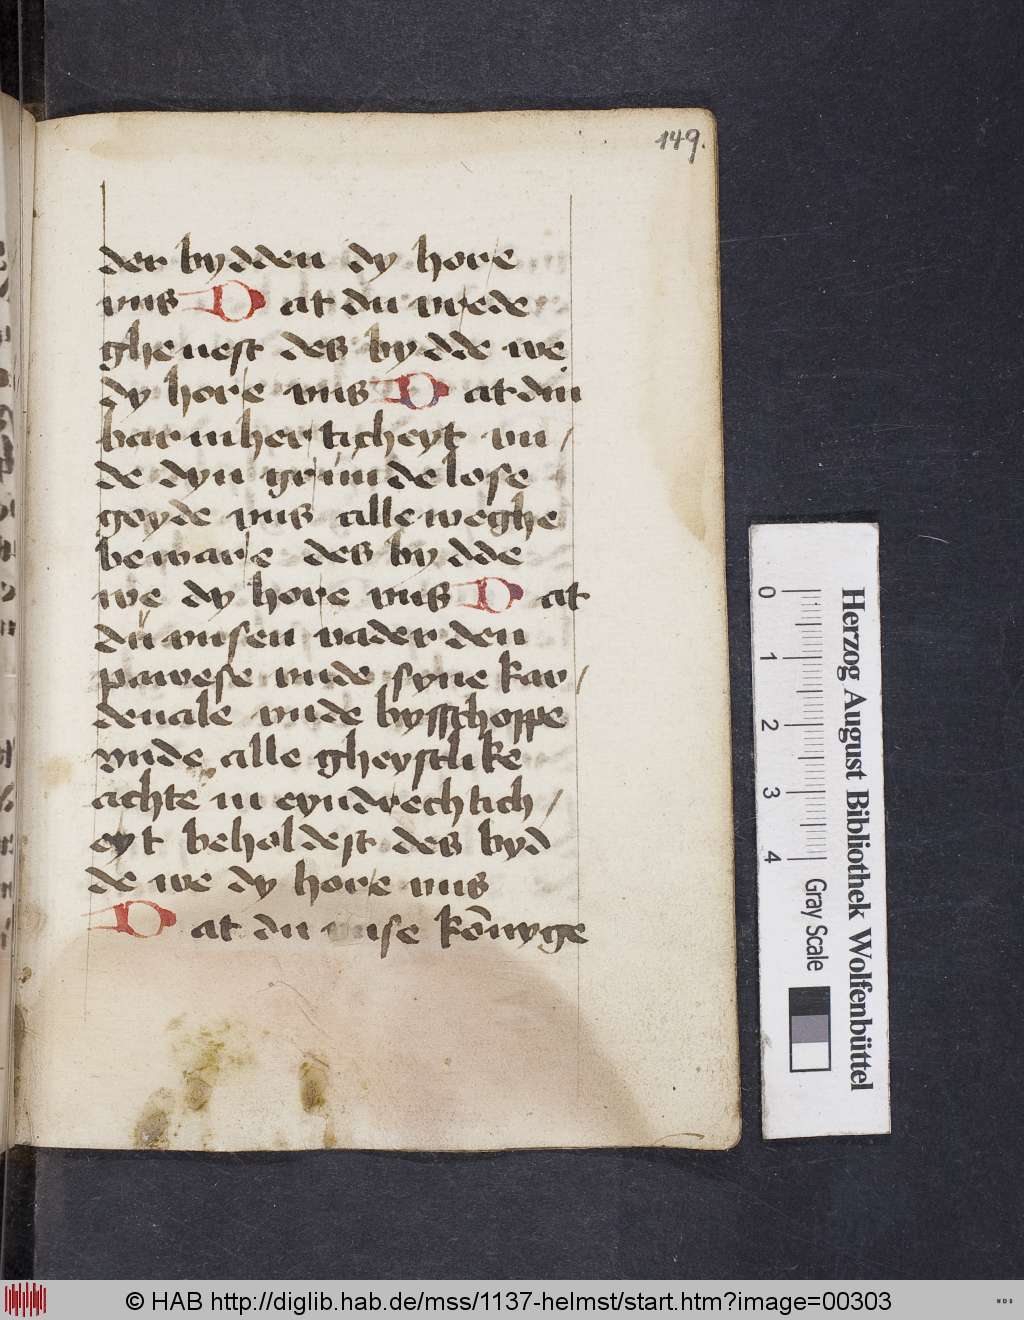 149.
der bydden dy hore
vns Dat du vrede
gheuest des bydde we
dy hore vns Dat din
barmherticheyt vn/
de dyn grundelose
goyde vns alleweghe
beware des bydde
we dy hore vns Dat
du vnsen vader den
pawese vnde syne kar/
denale vnde bysschoppe
vnde alle gheystlike
achte in eyndrechtich/
eyt beholdest des byd
de we dy hore vns
Dat du vnse kōnyge
0 1 2 3 4
Herzog August Bibliothek Wolfenbüttel
Gray Scale
© HAB http://diglib.hab.de/mss/1137-helmst/start.htm?image=00303